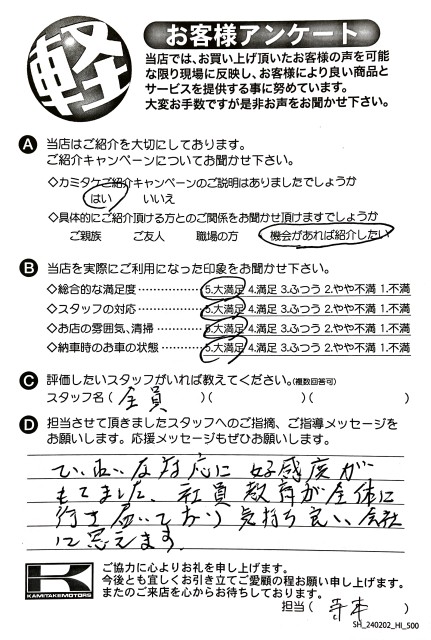 軽
お客様アンケート
当店では、お買い上げ頂いたお客様の声を可能
な限り現場に反映し、お客様により良い商品と
サービスを提供する事に努めています。
大変お手数ですが是非お声をお聞かせ下さい。
A 当店はご紹介を大切にしております。
ご紹介キャンペーンについてお聞かせ下さい。
◇カミタケご紹介キャンペーンのご説明はありましたでしょうか
はい いいえ
◇具体的にご紹介頂ける方とのご関係をお聞かせ頂けますでしょうか
ご親族 ご友人 職場の方 機会があれば紹介したい
B 当店を実際にご利用になった印象をお聞かせ下さい。
◇総合的な満足度 5.大満足 4.満足 3.ふつう 2.やや不満 1.不満
◇スタッフの対応 5.大満足 4.満足 3.ふつう 2.やや不満 1.不満
◇お店の雰囲気、清掃 5.大満足 4.満足 3.ふつう 2.やや不満 1.不満
◇納車時のお車の状態 5.大満足 4.満足 3.ふつう 2.やや不満 1.不満
C 評価したいスタッフがいれば教えてください。(複数回答可)
スタッフ名( 全員 )( )( )
D 担当させて頂きましたスタッフへのご指摘、ご指導メッセージを
お願いします。応援メッセージもぜひお願いします。
ていねいな対応に好感度が
もてました、社員教育が全体に
行き届いており気持ち良い、会社
に思えます。
K
KAMITAKEMOTORS
ご協力に心よりお礼を申し上げます。
今後とも宜しくお引き立てご愛顧の程お願い申し上げます。
またのご来店を心からお待ちしております。
担当( 寺本 )
SH_240202_HI_500